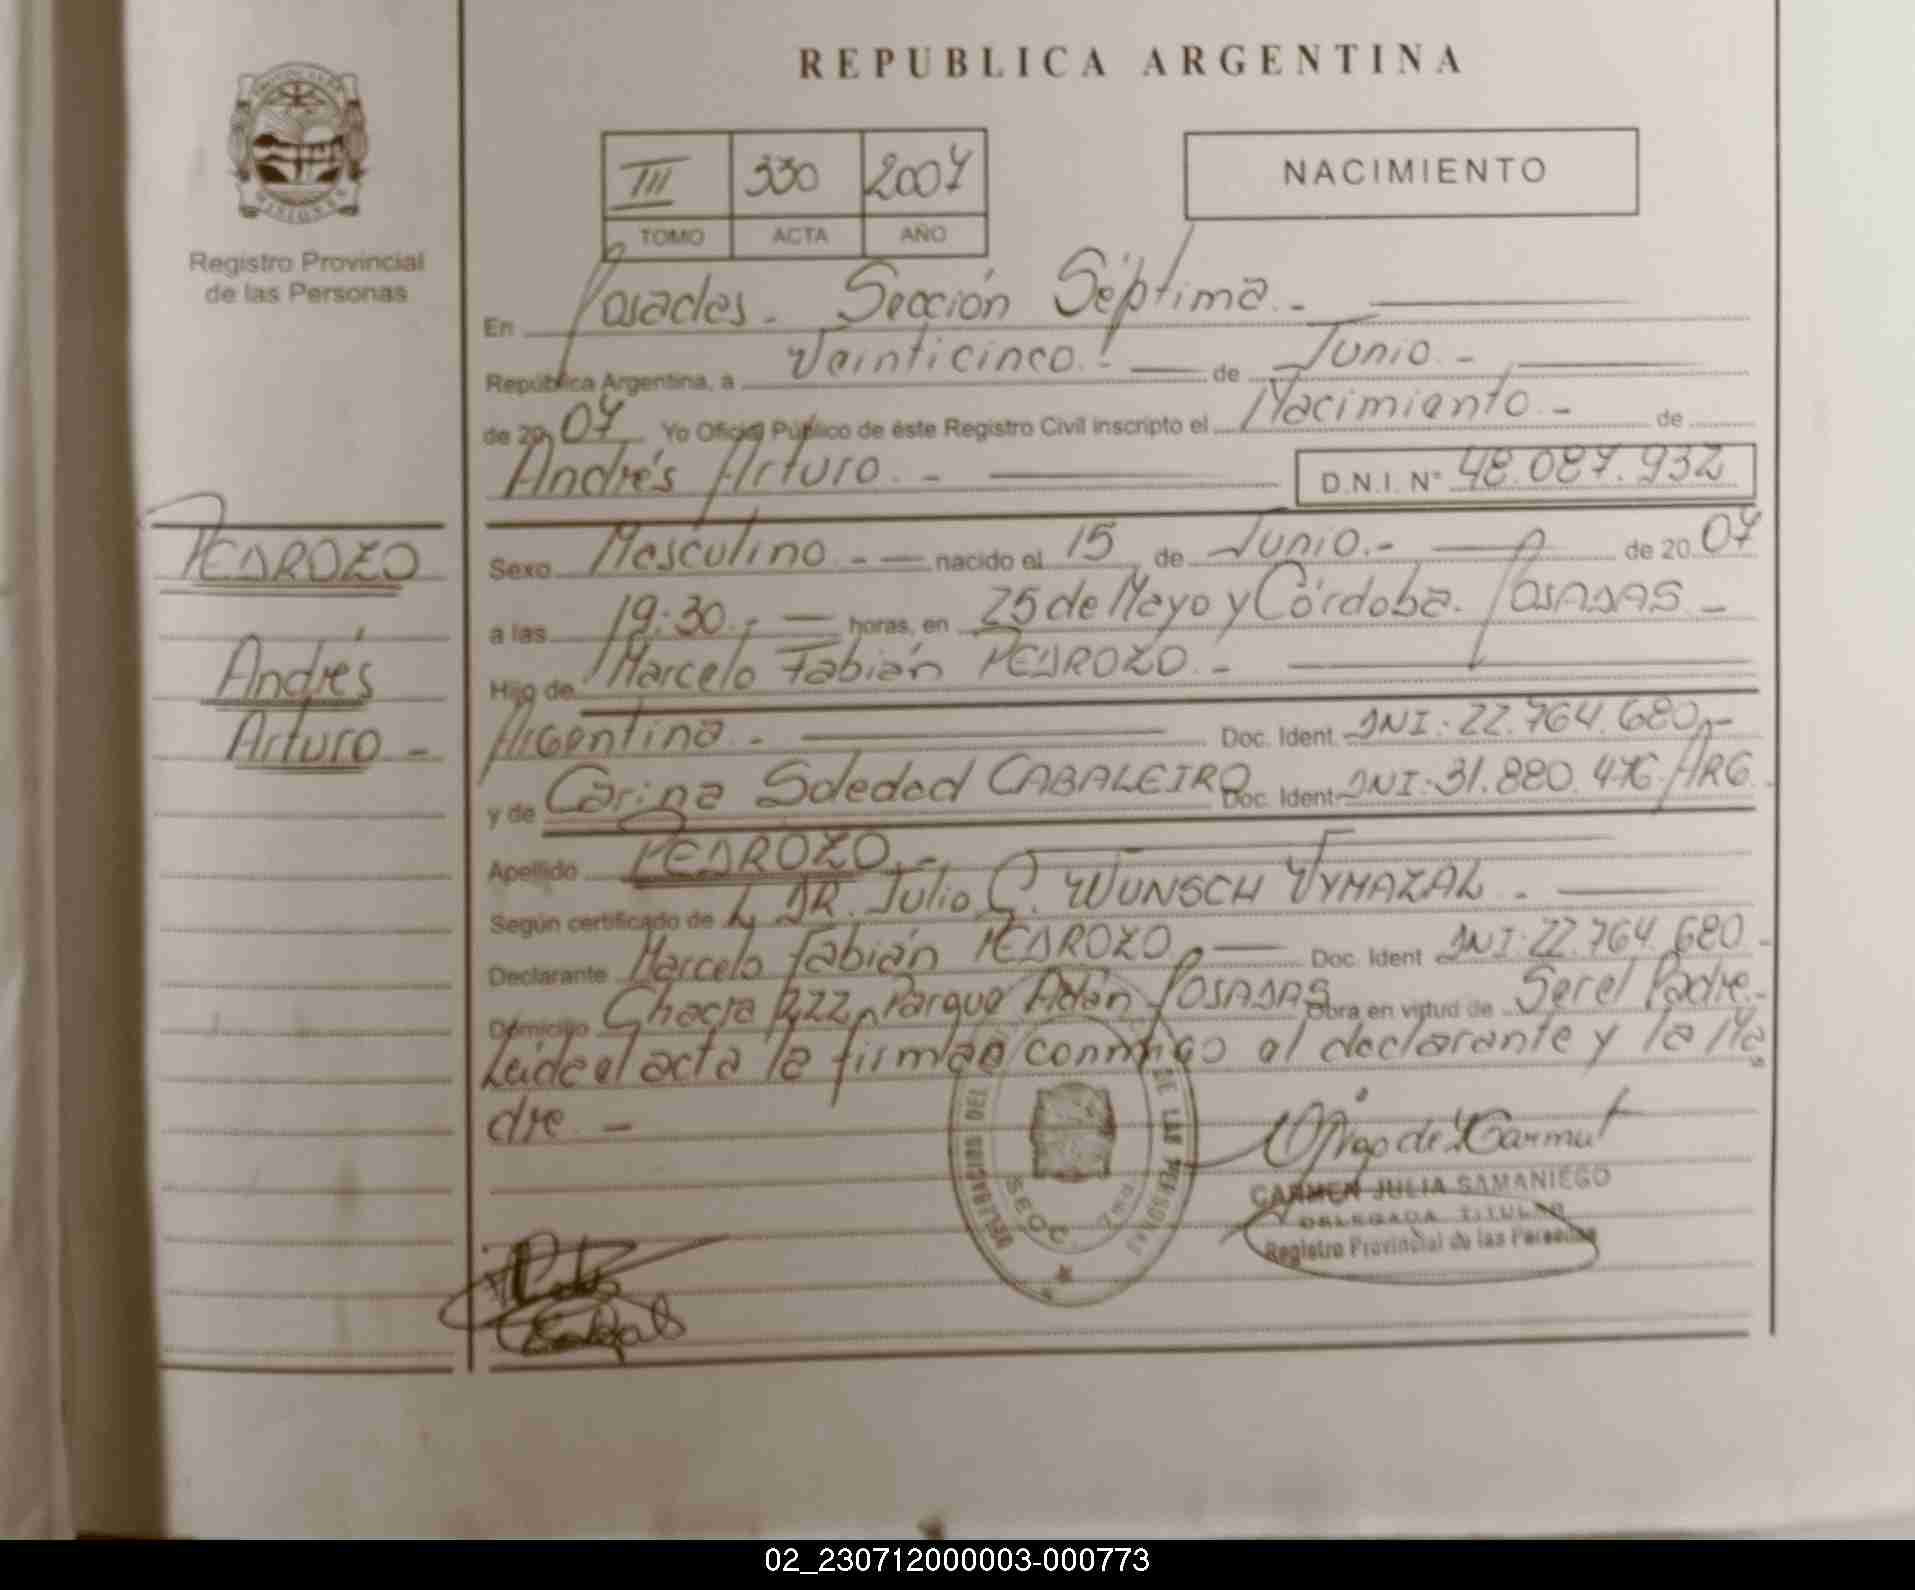 REPUBLICA ARGENTINA
MISIONES
Registro Provincial
de las Personas
III 330 2007
TOMO ACTA AÑO
NACIMIENTO
En Posadas.- Sección Séptima.-
República Argentina, a Veinticinco.- de Junio.-
de 2007 Yo Oficial Público de éste Registro Civil inscripto el Nacimiento.- de
Andrés Arturo.- D.N.I. N° 48.087.932
PEDROZO
Andrés
Arturo -
Sexo Masculino.- nacido el 15 de Junio.- de 2007
a las 19:30.- horas, en 25 de Mayo y Córdoba. POSADAS -
Hijo de Marcelo Fabián PEDROZO.-
Argentina.- Doc. Ident. DNI: 22.764.680.-
y de Carina Soledad CABALEIRO Doc. Ident. DNI: 31.880.476. ARG.
Apellido PEDROZO.-
Según certificado de DR. Julio C. WUNSCH VYMAZAL.-
Declarante Marcelo Fabián PEDROZO. Doc. Ident DNI: 22.764.680-
Domicilio Chacra 222, Parque Adán POSADAS Obra en virtud de Ser el Padre.-
Leída el acta la firman conmigo el declarante y la Ma
dre.-
DEL DE LAS PERSONAS
SECC.
CARMEN JULIA SAMANIEGO
DELEGADA TITULAR
Registro Provincial de las Personas
02_230712000003-000773